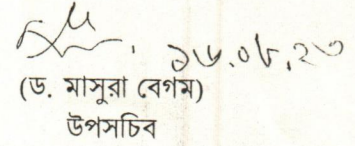 ১৬.০৮.২৩
(ড. মাসুরা বেগম)
উপসচিব